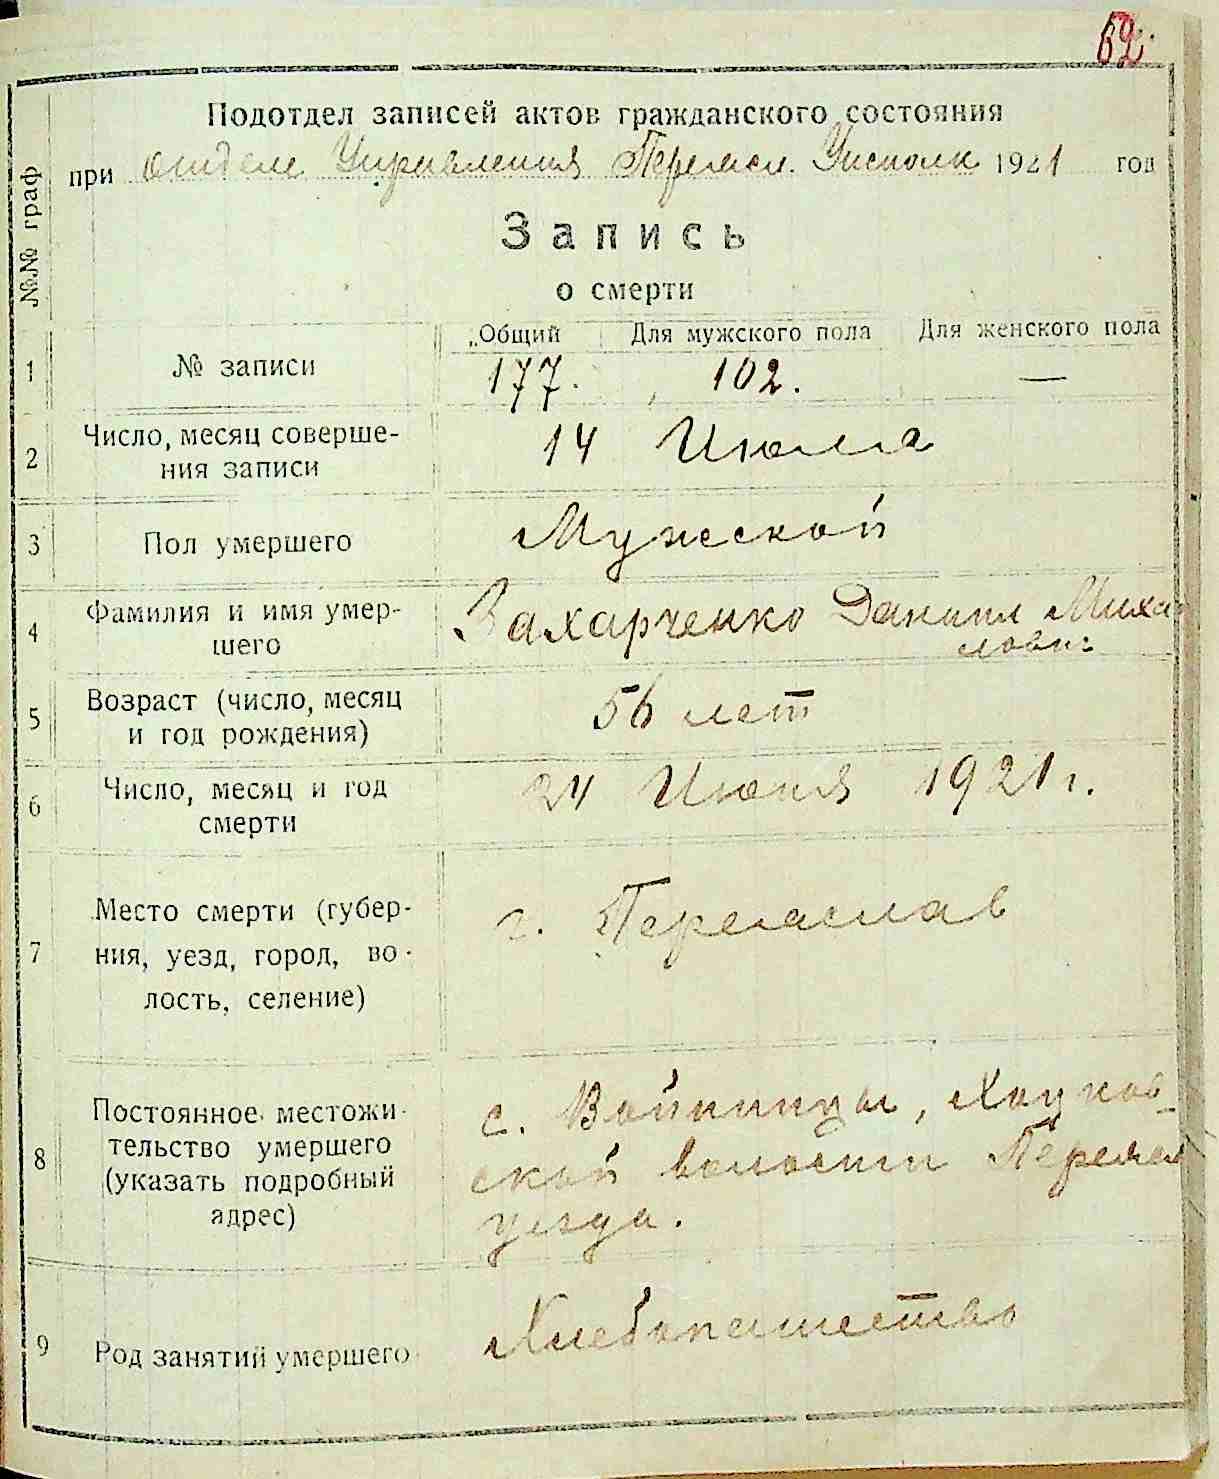 62.
Подотдел записей актов гражданского состояния
при отделе Управления Переясл. Уисполк 1921 год
№№ граф
Запись
о смерти
Общий Для мужского пола Для женского пола
1 № записи 177. 102. —
2 Число, месяц соверше-
ния записи
14 Июля
3 Пол умершего Мужской
4 Фамилия и имя умер-
шего
Захарченко Даниил Миха
лович
5 Возраст (число, месяц
и год рождения)
56 лет
6 Число, месяц и год
смерти
24 Июня 1921 г.
7 Место смерти (губер-
ния, уезд, город, во-
лость, селение)
г. Переяслав
8 Постоянное местожи-
тельство умершего
(указать подробный
адрес)
с. Войницы, Хоцков-
ской волости Переясл
уезда.
9 Род занятий умершего Хлебопашество